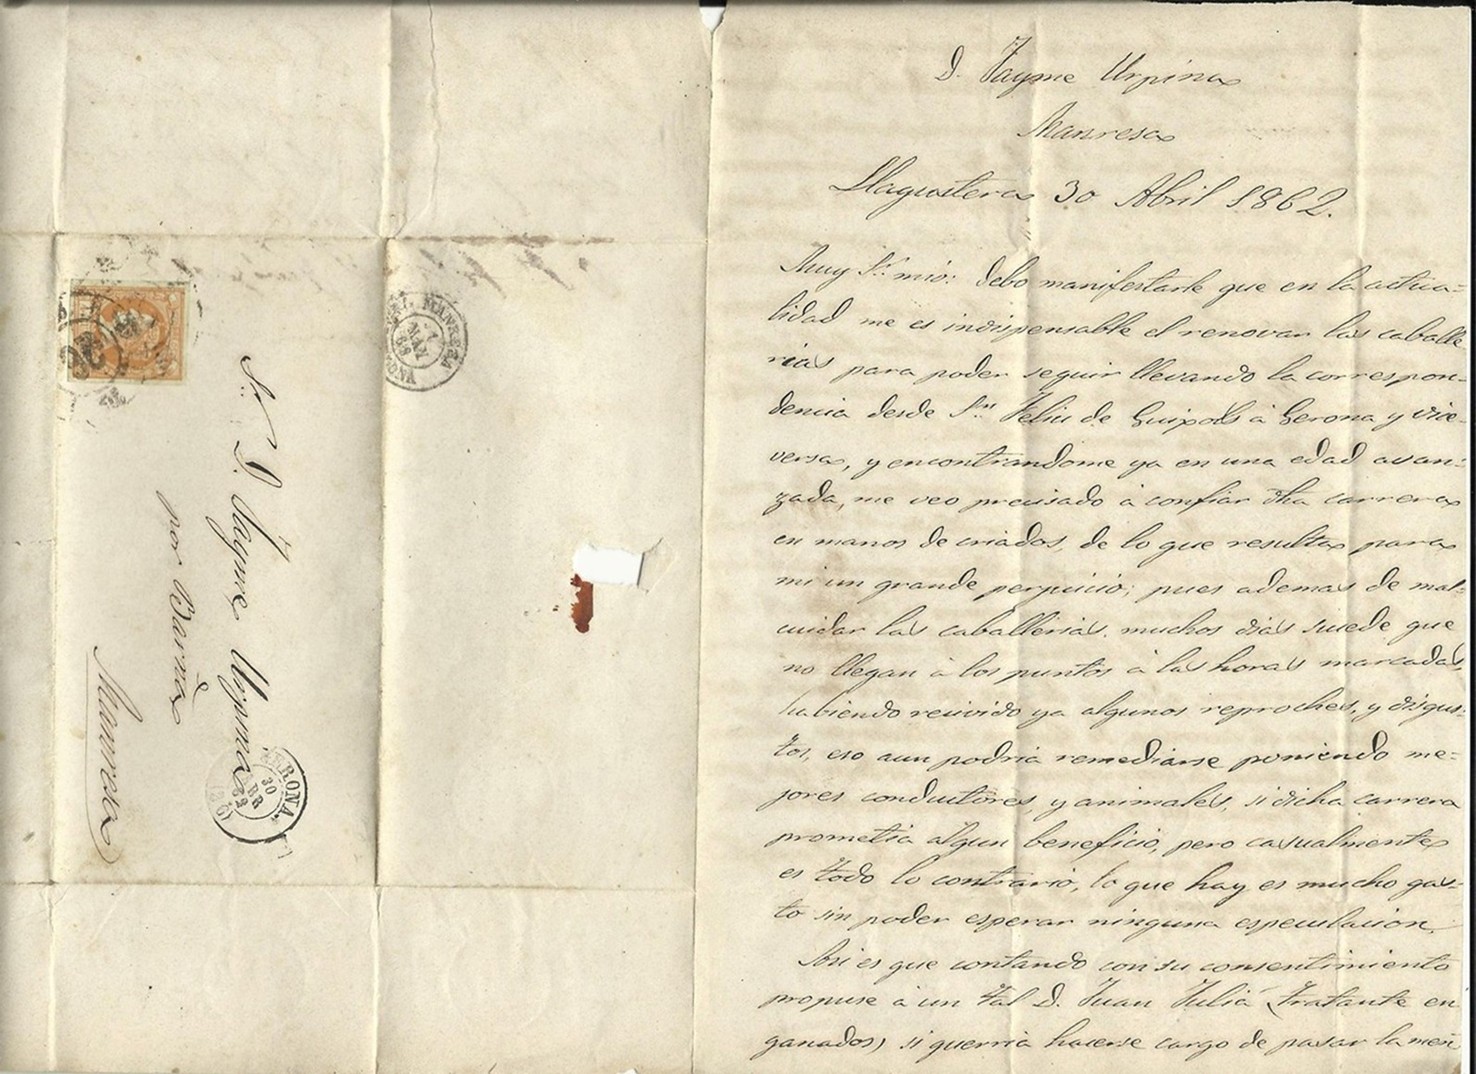 Sr. D. Jayme Urpina
por Barna
Manresa
GERONA.
30
ABR
62
MANRESA
MAY
D. Jayme Urpina
Manresa
Llagostera 30 Abril 1862.
Muy Sr. mio: Debo manifestarle que en la actua=
lidad me es indispensable el renovar las caballe
rias para poder seguir llevando la correspon-
dencia desde Sn. Feliu de Guixols á Gerona y vice-
versa, y encontrandome ya en una edad avan-
zada, me veo precisado á confiar dha carrera
en manos de criados, de lo que resulta para
mi un grande perjuicio; pues ademas de mal-
cuidar las caballerias, muchos dias sucede que
no llegan á los puntos á las horas marcadas,
habiendo recivido ya algunos reproches, y disgus-
tos, eso aun podria remediarse poniendo me=
jores conductores, y animales, si dicha carrera
prometia algun beneficio, pero casualmente
es todo lo contrario, lo que hay es mucho gas-
to sin poder esperar ninguna especulacion.
Asi es que contando con su consentimiento
propuse á un tal D. Juan Juliá (tratante en
ganados) si querria hacerse cargo de pasar la men